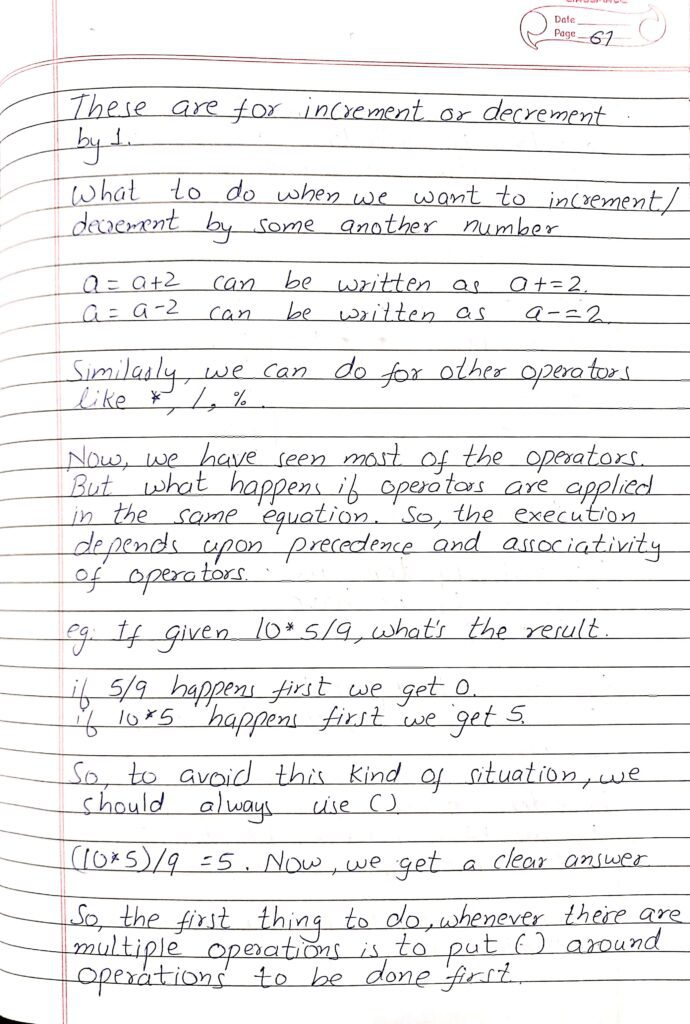 Date
Page 61
These are for increment or decrement
by 1.
What to do when we want to increment/
decrement by some another number
a = a+2 can be written as a+=2.
a = a-2 can be written as a-=2.
Similarly, we can do for other operators
like *, /, %.
Now, we have seen most of the operators.
But what happens if operators are applied
in the same equation. So, the execution
depends upon precedence and associativity
of operators.
eg: If given 10*5/9, what's the result.
if 5/9 happens first we get 0.
if 10*5 happens first we get 5.
So, to avoid this kind of situation, we
should always use ().
(10*5)/9 =5. Now, we get a clear answer.
So, the first thing to do, whenever there are
multiple operations is to put () around
operations to be done first.